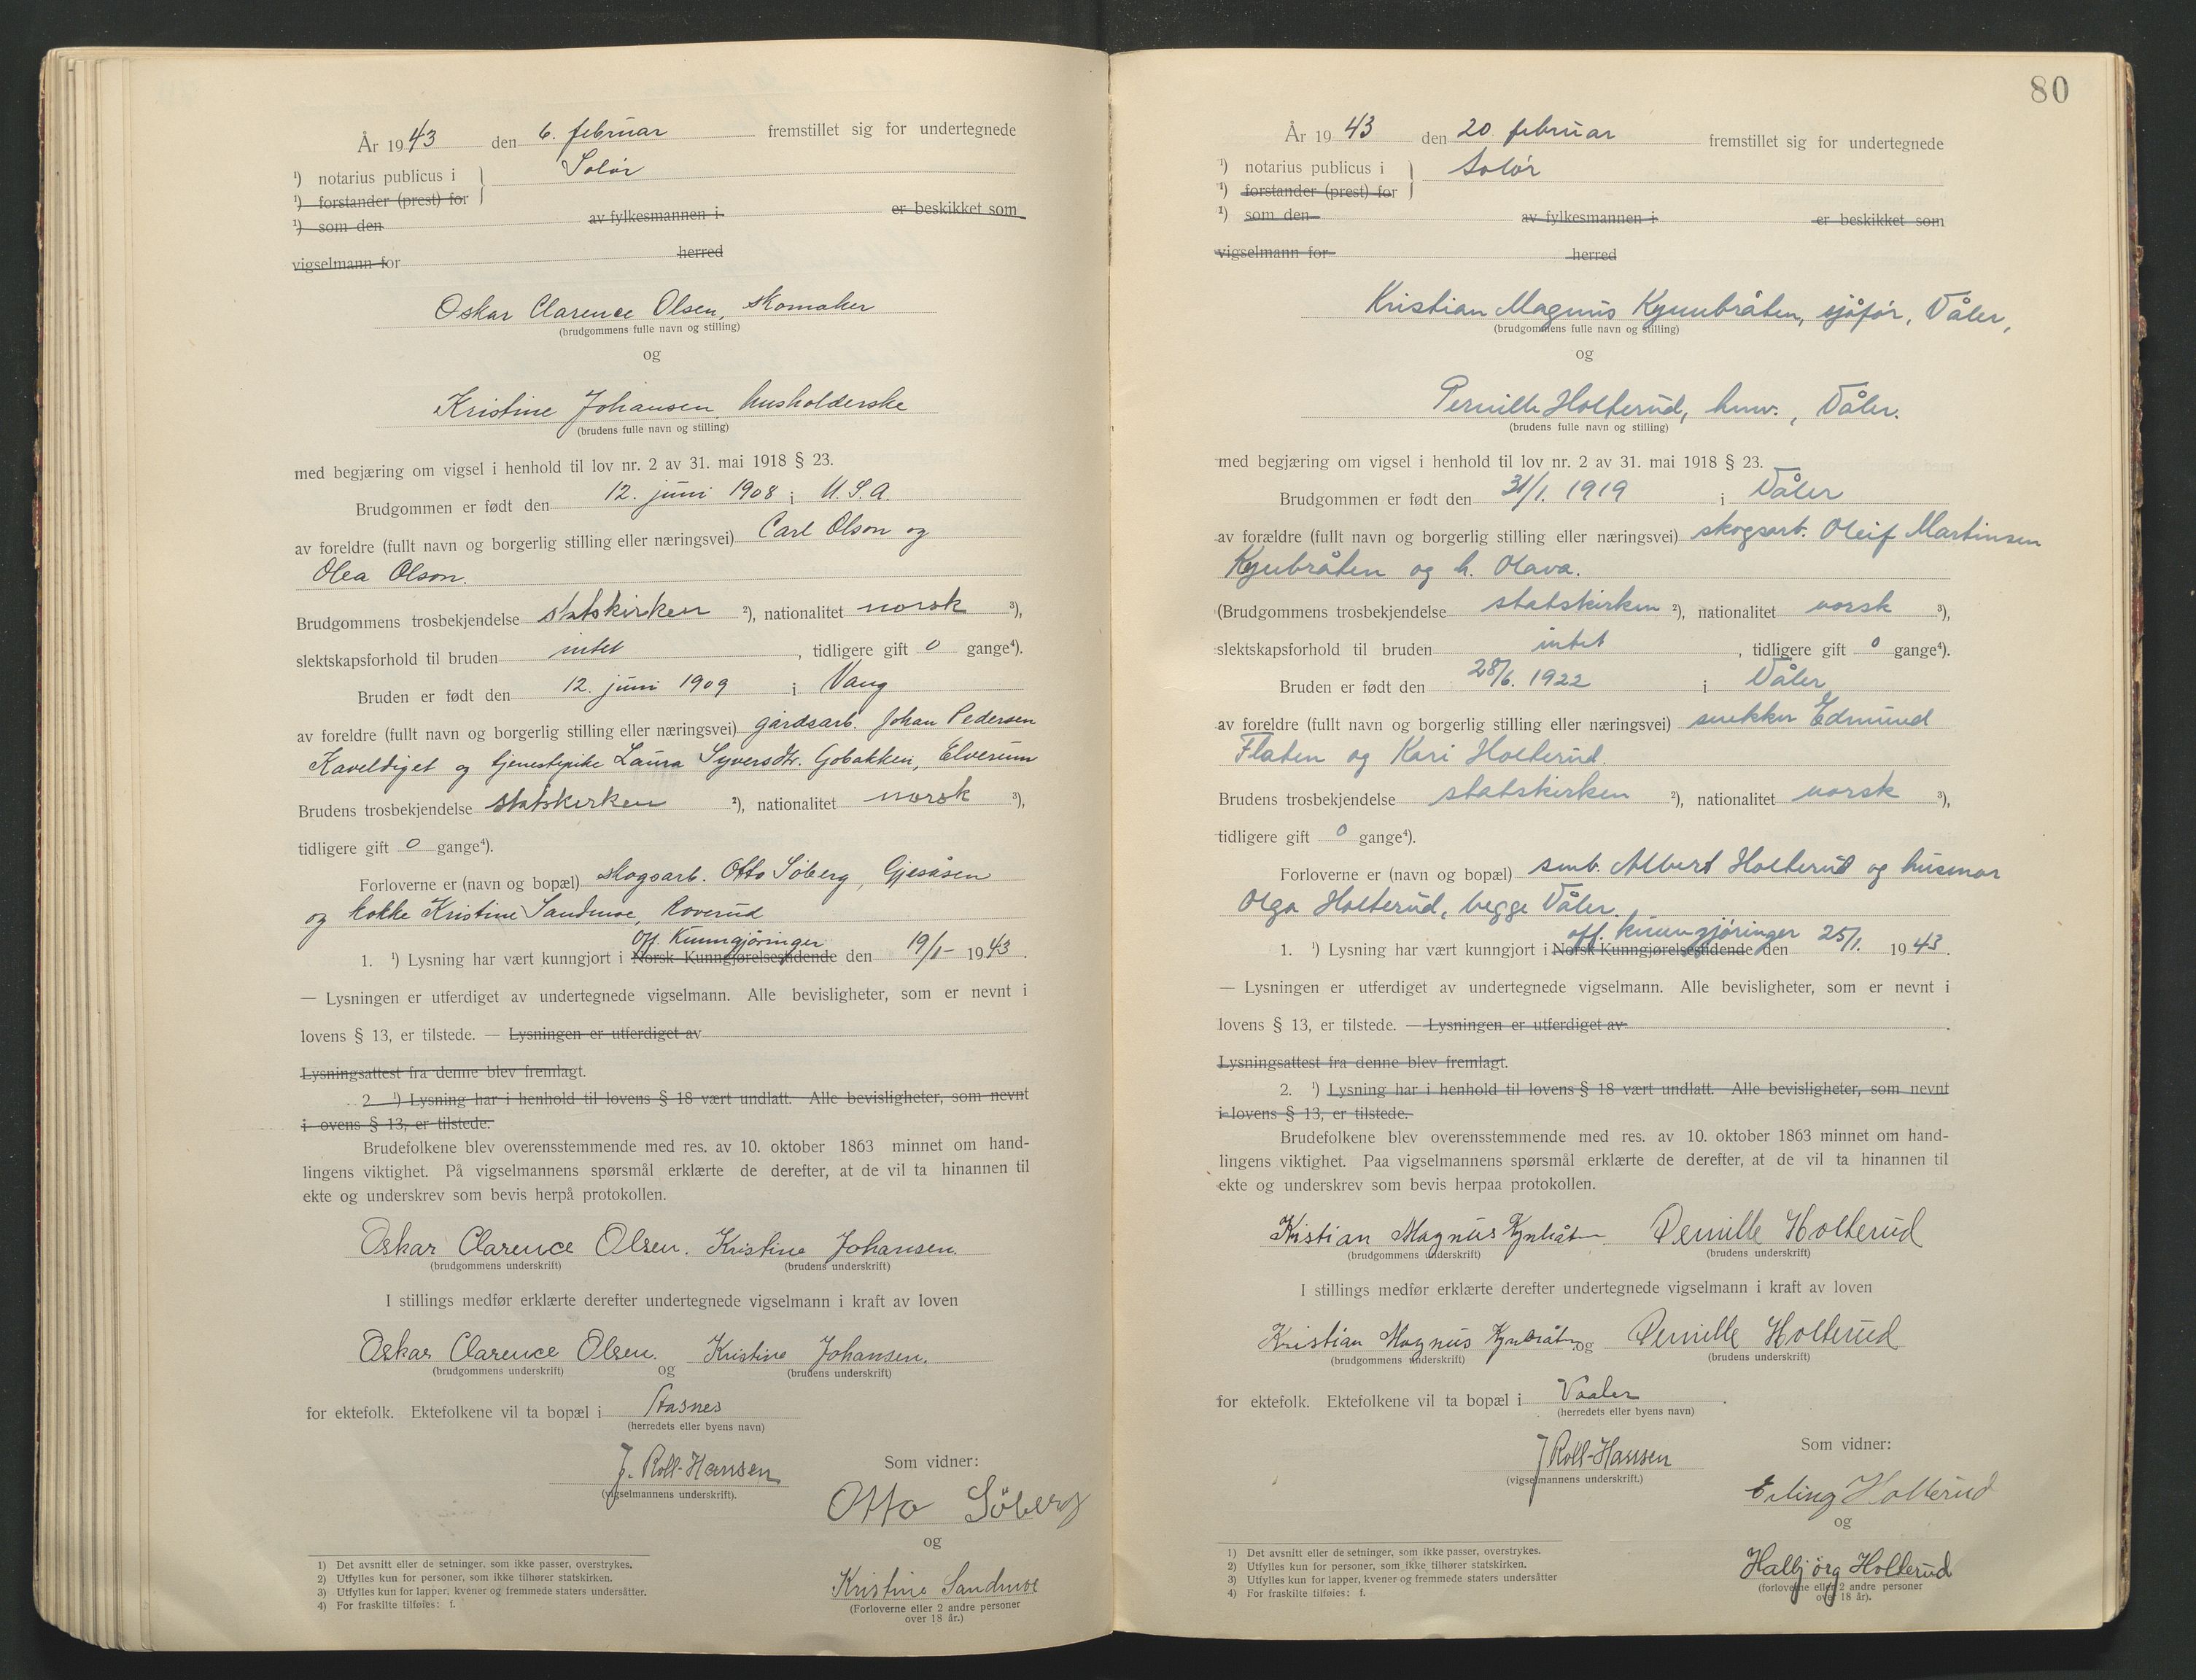 År 1943 den 6. februar fremstillet sig for undertegnede
¹) notarius publicus i } Solør
¹) forstander (prest) for
¹) som den av fylkesmannen i er beskikket som
vigselmann for herred
Oskar Clarence Olsen, skomaker
(brudgommens fulle navn og stilling)
og
Kristine Johansen, husholderske
(brudens fulle navn og stilling)
med begjæring om vigsel i henhold til lov nr. 2 av 31. mai 1918 § 23.
Brudgommen er født den 12. juni 1908 i U.S.A.
av foreldre (fullt navn og borgerlig stilling eller næringsvei) Carl Olson og
Olea Olson.
Brudgommens trosbekjendelse statskirken ²), nationalitet norsk ³),
slektskapsforhold til bruden intet , tidligere gift 0 gange⁴).
Bruden er født den 12. juni 1909 i Vang
av foreldre (fullt navn og borgerlig stilling eller næringsvei) gårdsarb. Johan Pedersen
Kaveldiget og tjenestepike Laura Syversdtr. Gobakken, Elverum
Brudens trosbekjendelse statskirken ²), nationalitet norsk ³),
tidligere gift 0 gange⁴).
Forloverne er (navn og bopæl) skogsarb. Otto Söberg, Gjesåsen
og kokke Kristine Sandmoe, Roverud
off. Kunngjøringer
1. ¹) Lysning har vært kunngjort i Norsk Kunngjørelsestidende den 19/1- 1943.
— Lysningen er utferdiget av undertegnede vigselmann. Alle bevisligheter, som er nevnt i
lovens § 13, er tilstede. — Lysningen er utferdiget av
Lysningsattest fra denne blev fremlagt.
2 ¹) Lysning har i henhold til lovens § 18 vært undlatt. Alle bevisligheter, som nevnt
i ovens § 13, er tilstede.
Brudefolkene blev overensstemmende med res. av 10. oktober 1863 minnet om hand-
lingens viktighet. På vigselmannens spørsmål erklærte de derefter, at de vil ta hinannen til
ekte og underskrev som bevis herpå protokollen.
Oskar Clarence Olsen. Kristine Johansen.
(brudgommens underskrift) (brudens underskrift)
I stillings medfør erklærte derefter undertegnede vigselmann i kraft av loven
Oskar Clarence Olsen. og Kristine Johansen.
(brudgommens underskrift) (brudens underskrift)
for ektefolk. Ektefolkene vil ta bopæl i Åsnes
(herredets eller byens navn)
J. Roll-Hansen
(vigselmannens underskrift).
Som vidner:
Otto Söberg
og
Kristine Sandmoe
(Forloverne eller 2 andre personer
over 18 år.)
1) Det avsnitt eller de setninger, som ikke passer, overstrykes.
2) Utfylles kun for personer, som ikke tilhører statskirken.
3) Utfylles kun for lapper, kvener og fremmede staters undersåtter.
4) For fraskilte tilføies: f.
80
År 1943 den 20. februar fremstillet sig for undertegnede
¹) notarius publicus i } Solør
¹) forstander (prest) for
¹) som den av fylkesmannen i er beskikket som
vigselmann for herred
Kristian Magnus Kynbråten, sjåfør, Våler,
(brudgommens fulle navn og stilling)
og
Pernille Holterud, hmv., Våler.
(brudens fulle navn og stilling)
med begjæring om vigsel i henhold til lov nr. 2 av 31. mai 1918 § 23.
Brudgommen er født den 31/1. 1919 i Våler
av forældre (fullt navn og borgerlig stilling eller næringsvei) skogsarb. Oleif Martinsen
Kynbråten og h. Olava.
(Brudgommens trosbekjendelse statskirken ²), nationalitet norsk ³),
slektskapsforhold til bruden intet , tidligere gift 0 gange⁴).
Bruden er født den 28/6. 1922 i Våler
av foreldre (fullt navn og borgerlig stilling eller næringsvei) snekker Edmund
Flaten og Kari Holterud.
Brudens trosbekjendelse statskirken ²), nationalitet norsk ³),
tidligere gift 0 gange⁴).
Forloverne er (navn og bopæl) smb. Albert Holterud og husmor
Olga Holterud, begge Våler.
off. kunngjøringer
1. ¹) Lysning har vært kunngjort i Norsk Kunngjørelsestidende den 25/1. 1943.
— Lysningen er utferdiget av undertegnede vigselmann. Alle bevisligheter, som er nevnt i
lovens § 13, er tilstede. — Lysningen er utferdiget av .
Lysningsattest fra denne blev fremlagt.
2. ¹) Lysning har i henhold til lovens § 18 vært undlatt. Alle bevisligheter, som nevnt
i lovens § 13, er tilstede.
Brudefolkene blev overensstemmende med res. av 10. oktober 1863 minnet om hand-
lingens viktighet. Paa vigselmannens spørsmål erklærte de derefter, at de vil ta hinannen til
ekte og underskrev som bevis herpaa protokollen.
Kristian Magnus Kynbråten. Pernille Holterud
(brudgommens underskrift) (brudens underskrift)
I stillings medfør erklærte derefter undertegnede vigselmann i kraft av loven
Kristian Magnus Kynbråten og Pernille Holterud
(brudgommens underskrift) (brudens underskrift)
for ektefolk. Ektefolkene vil ta bopæl i Vaaler .
(herredets eller byens navn)
J Roll-Hansen
(vigselmannens underskrift.)
Som vidner:
Erling Holterud
og
Halbjörg Holterud
(forloverne eller 2 andre personer
over 18 år).
1) Det avsnitt eller de setninger, som ikke passer, overstrykes.
2) Utfylles kun for personer, som ikke tilhører statskirken.
3) Utfylles kun for lapper, kvener og fremmede staters undersåtter
4) For fraskilte tilføies: f.